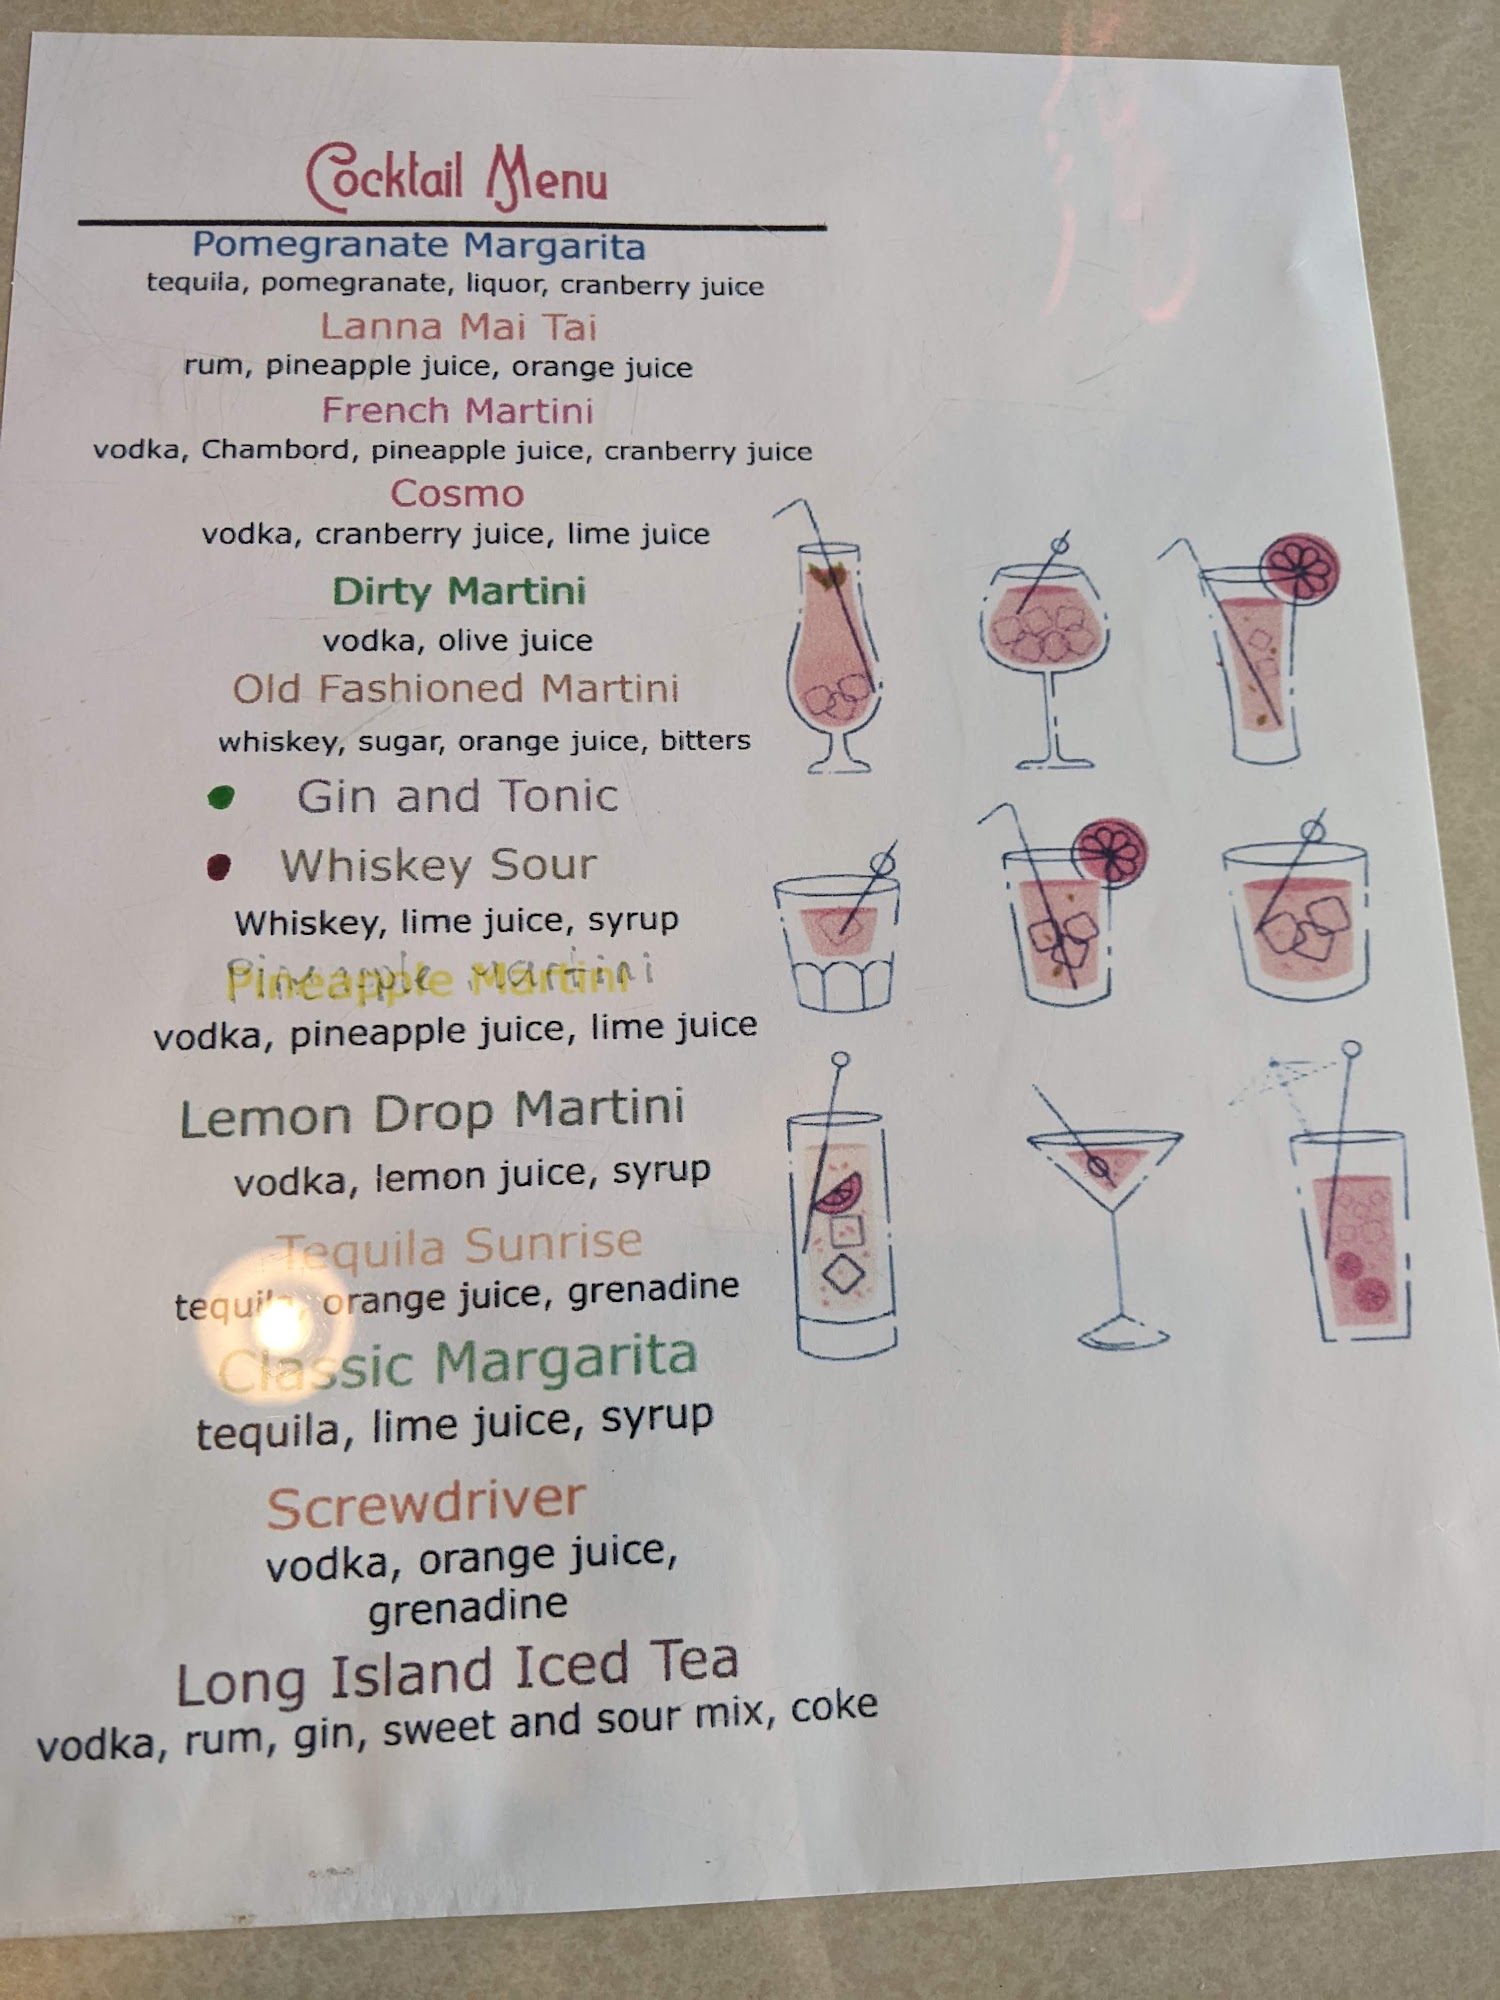 Cocktail Menu
Pomegranate Margarita
tequila, pomegranate, liquor, cranberry juice
Lanna Mai Tai
rum, pineapple juice, orange juice
French Martini
vodka, Chambord, pineapple juice, cranberry juice
Cosmo
vodka, cranberry juice, lime juice
Dirty Martini
vodka, olive juice
Old Fashioned Martini
whiskey, sugar, orange juice, bitters
Gin and Tonic
Whiskey Sour
Whiskey, lime juice, syrup
Pineapple Martini
Pineapple Martini
vodka, pineapple juice, lime juice
Lemon Drop Martini
vodka, lemon juice, syrup
Tequila Sunrise
tequila, orange juice, grenadine
Classic Margarita
tequila, lime juice, syrup
Screwdriver
vodka, orange juice,
grenadine
Long Island Iced Tea
vodka, rum, gin, sweet and sour mix, coke